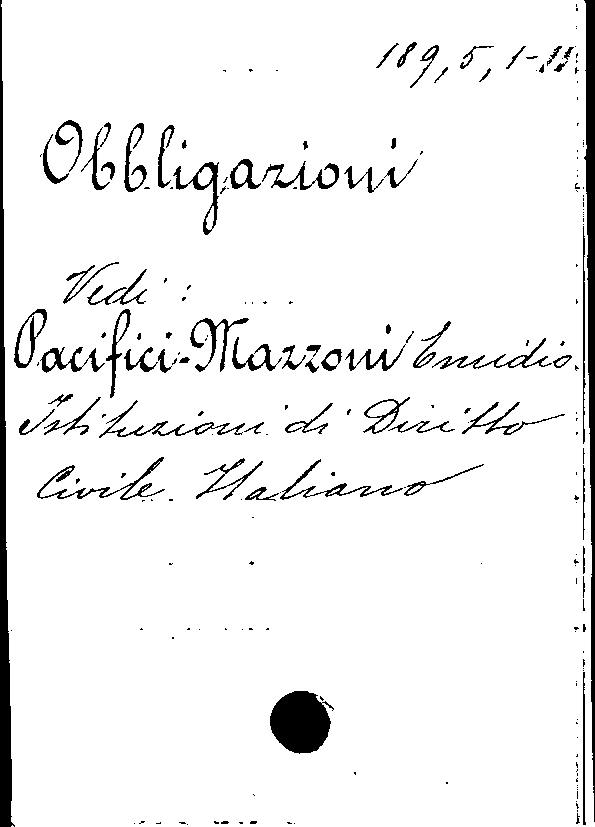 189, 5, 1-11
Obbligazioni
Vedi:
Pacifici-Mazzoni Emidio.
Istituzioni di Diritto
Civile Italiano